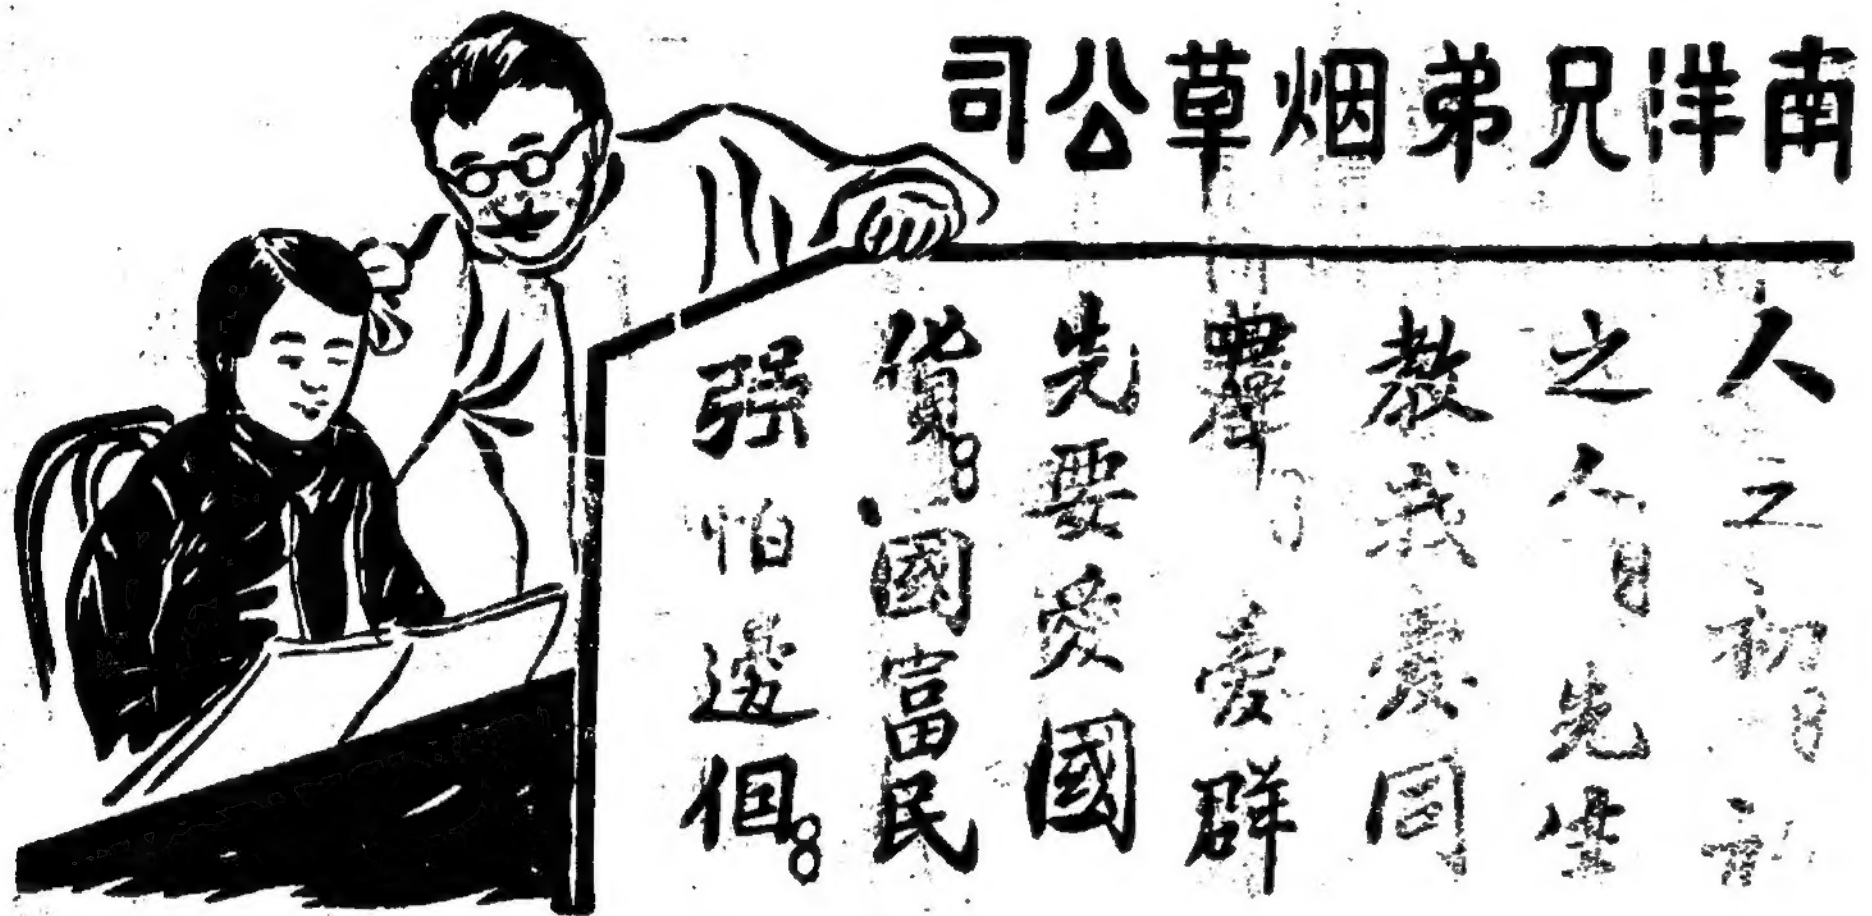 南洋兄弟烟草公司
人之初初
之人先生
教我愛同
羣愛群
先要愛國
貨。國富民
强怕邊個。